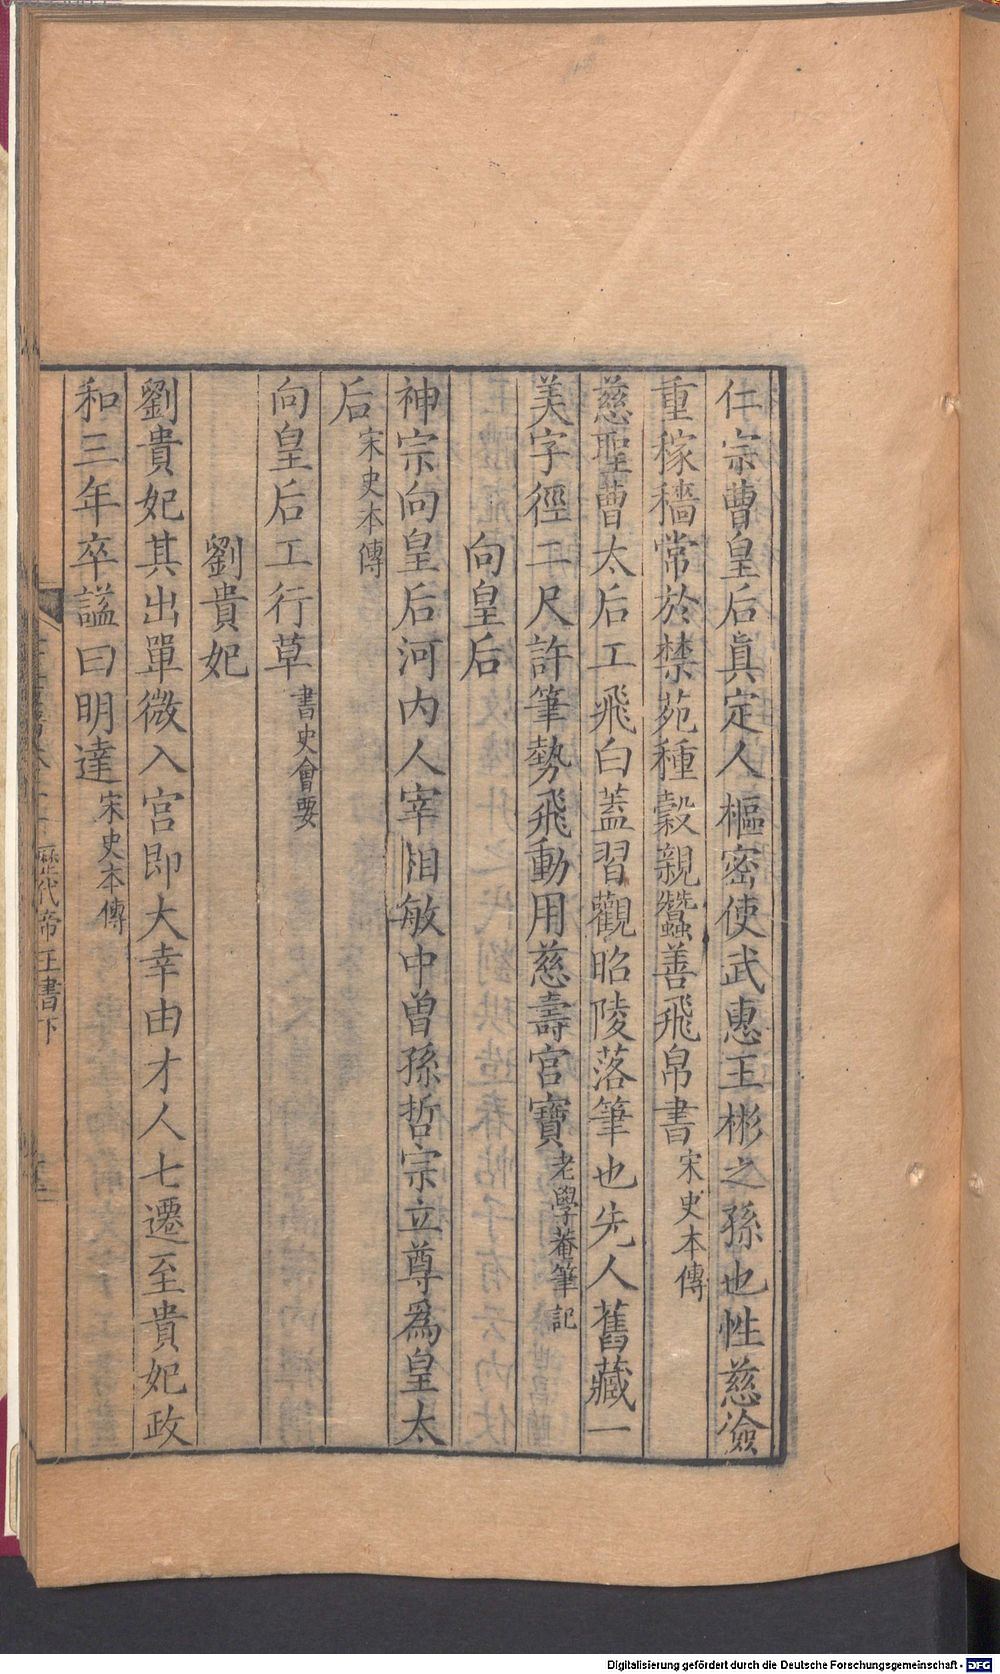 仁宗曹皇后眞定人樞密使武惠王彬之孫也性慈儉
重稼穡常於禁苑種穀親蠶善飛帛書宋史本傳
慈聖曹太后工飛白蓋習觀昭陵落筆也先人舊藏一
美字徑二尺許筆勢飛動用慈壽宮寶老學菴筆記
向皇后
神宗向皇后河内人宰相敏中曾孫哲宗立尊爲皇太
后宋史本傳
向皇后工行草書史會要
劉貴妃
劉貴妃其出單微入宮即大幸由才人七遷至貴妃政
和三年卒諡曰明達宋史本傳
歷代帝王書下
Digitalisierung gefördert durch die Deutsche Forschungsgemeinschaft - DFG